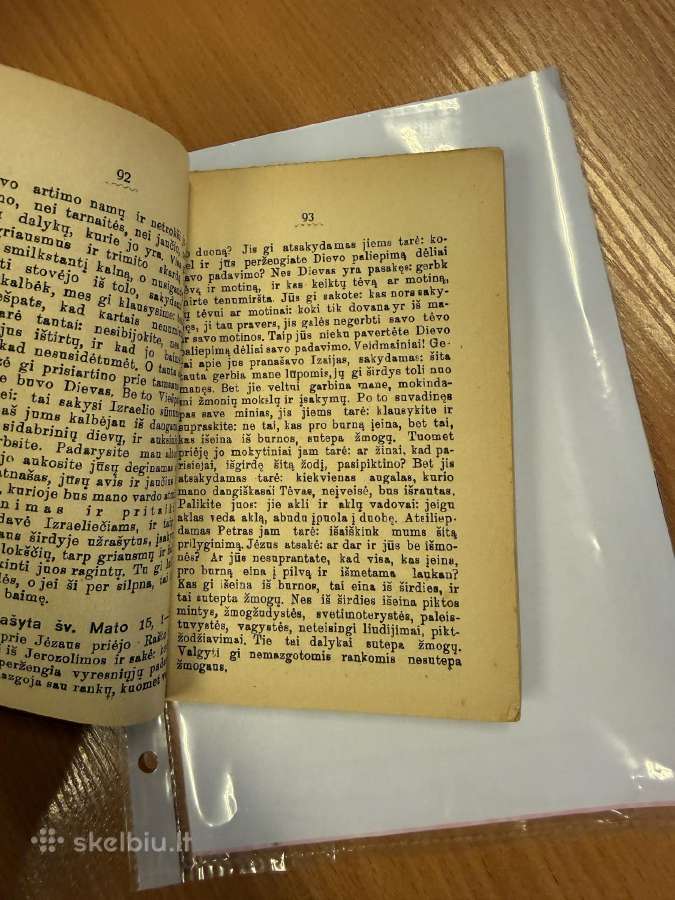 92
vo artimo namų ir netrokši
no, nei tarnaitės, nei jaučio,
dalykų, kurie jo yra.
griausmus ir trimito
smilkstantį kalną, o
ti stovėjo iš tolo,
kalbėk, mes gi klausysime:
ešpats, kad kartais
arė tantai: nesibijokite, nes
jus ištirtų, ir kad jo
kad nesusidėtumėt. O
tė gi prisiartino prie
e buvo Dievas. Be to
ei: tai sakysi Izraelio
aš jums kalbėjau iš
sidabrinių dievų, ir
rbsite. Padarysite man
jo aukosite jūsų
atnašas, jūsų avis ir
kurioje bus mano vardo
nimas ir
davė Izraeliečiams, ir
s širdyje užrašytus,
lokščių, tarp griausmų ir
kinti juos ragintų. Tu gi
lės, o jei ši per silpna, tai
baimę.
ašyta šv. Mato 15,
prie Jėzaus priėjo
i iš Jerozolimos ir sakė:
peržengia vyresniųjų
azgoja sau rankų, kuomet
93
duoną? Jis gi atsakydamas jiems tarė: ko-
el ir jūs peržengiate Dievo paliepimą dėliai
savo padavimo? Nes Dievas yra pasakęs: gerbk
tėvą ir motiną, ir kas keiktų tėvą ar motiną,
mirte tenumiršta. Jūs gi sakote: kas nors saky-
tų tėvui ar motinai: koki tik dovana yr iš ma-
nęs, ji tau pravers, jis galės negerbti savo tėvo
ir savo motinos. Taip jūs nieku pavertėte Dievo
paliepimą dėliai savo padavimo. Veidmainiai! Ge-
rai apie jus pranašavo Izaijas, sakydamas: šita
tauta gerbia mane lūpomis, jų gi širdys toli nuo
manęs. Bet jie veltui garbina mane, mokinda-
mi žmonių mokslų ir įsakymų. Po to suvadinęs
pas save minias, jis jiems tarė: klausykite ir
supraskite: ne tai, kas pro burną įeina, bet tai,
kas išeina iš burnos, sutepa žmogų. Tuomet
priėję jo mokytiniai jam tarė: ar žinai, kad pa-
risiejai, išgirdę šitą žodį, pasipiktino? Bet jis
atsakydamas tarė: kiekvienas augalas, kurio
mano dangiškasai Tėvas, neįveisė, bus išrautas.
Palikite juos: jie akli ir aklų vadovai: jeigu
aklas veda aklą, abudu įpuola į duobę. Atsiliep-
damas Petras jam tarė: išaiškink mums šitą
prilyginimą. Jėzus atsakė: ar dar ir jūs be išmo-
nės? Ar jūs nesuprantate, kad visa, kas įeina,
pro burną eina į pilvą ir išmetama laukan?
Kas gi išeina iš burnos, tai eina iš širdies, ir
tai sutepta žmogų. Nes iš širdies išeina piktos
mintys, žmogžudystės, svetimoterystės, paleis-
tuvystės, vagystės, neteisingi liudijimai, pikt-
žodžiavimai. Tie tai dalykai sutepa žmogų.
Valgyti gi nemazgotomis rankomis nesutepa
žmogaus.
skelbiu.lt